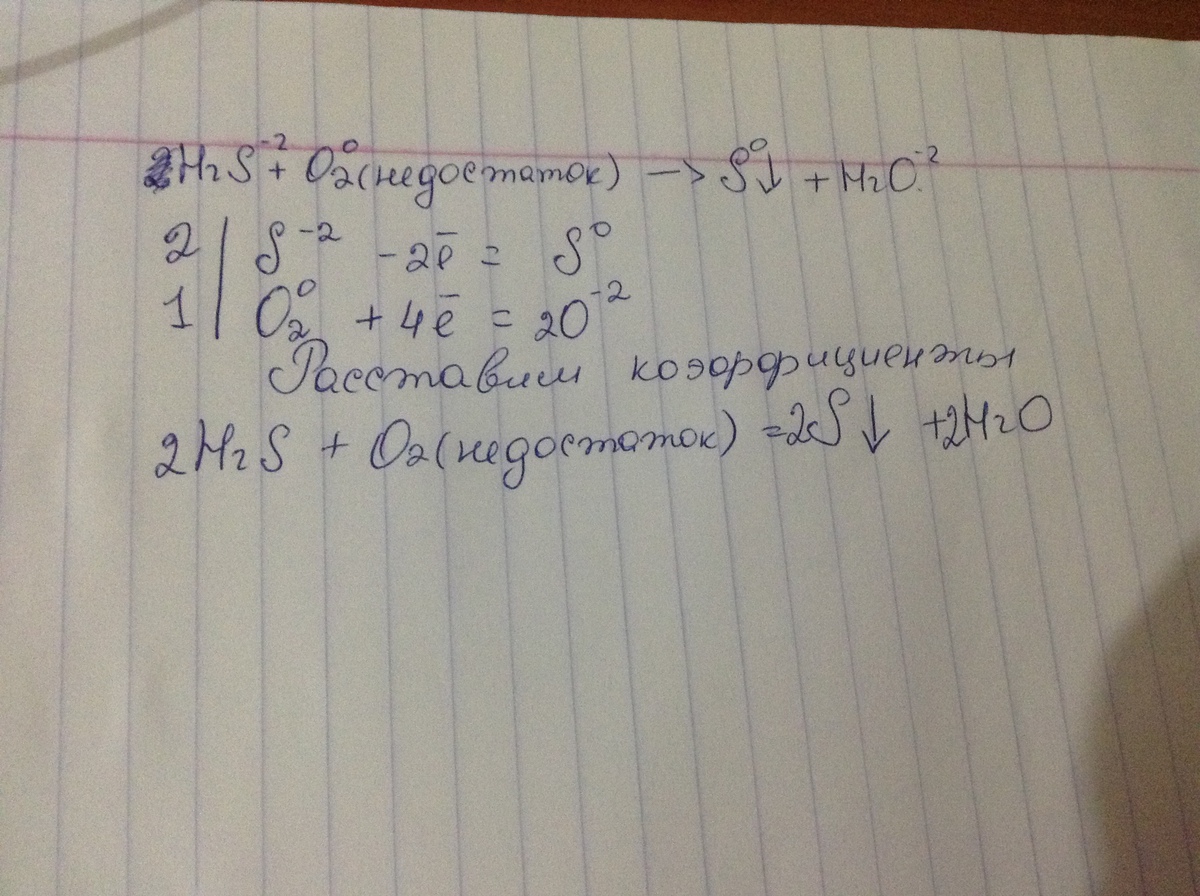 2H₂S⁻² + O₂⁰(недостаток) → S⁰↓ + H₂O⁻².
2 | S⁻² - 2ē = S⁰
1 | O₂⁰ + 4ē = 2O⁻²
Расставим коэффициенты
2H₂S + O₂(недостаток) = 2S↓ + 2H₂O